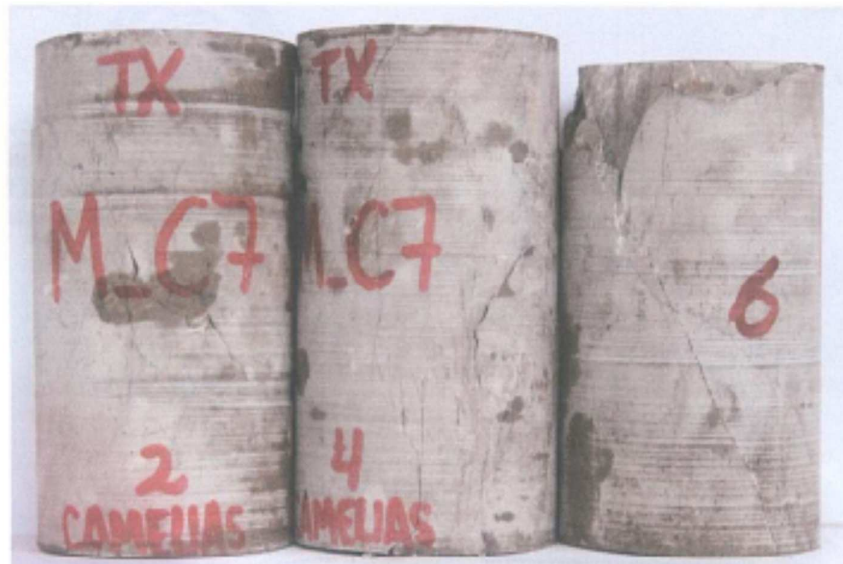 TX
M_C7
2
CAMELIAS
TX
M_C7
4
AMELIAS
6